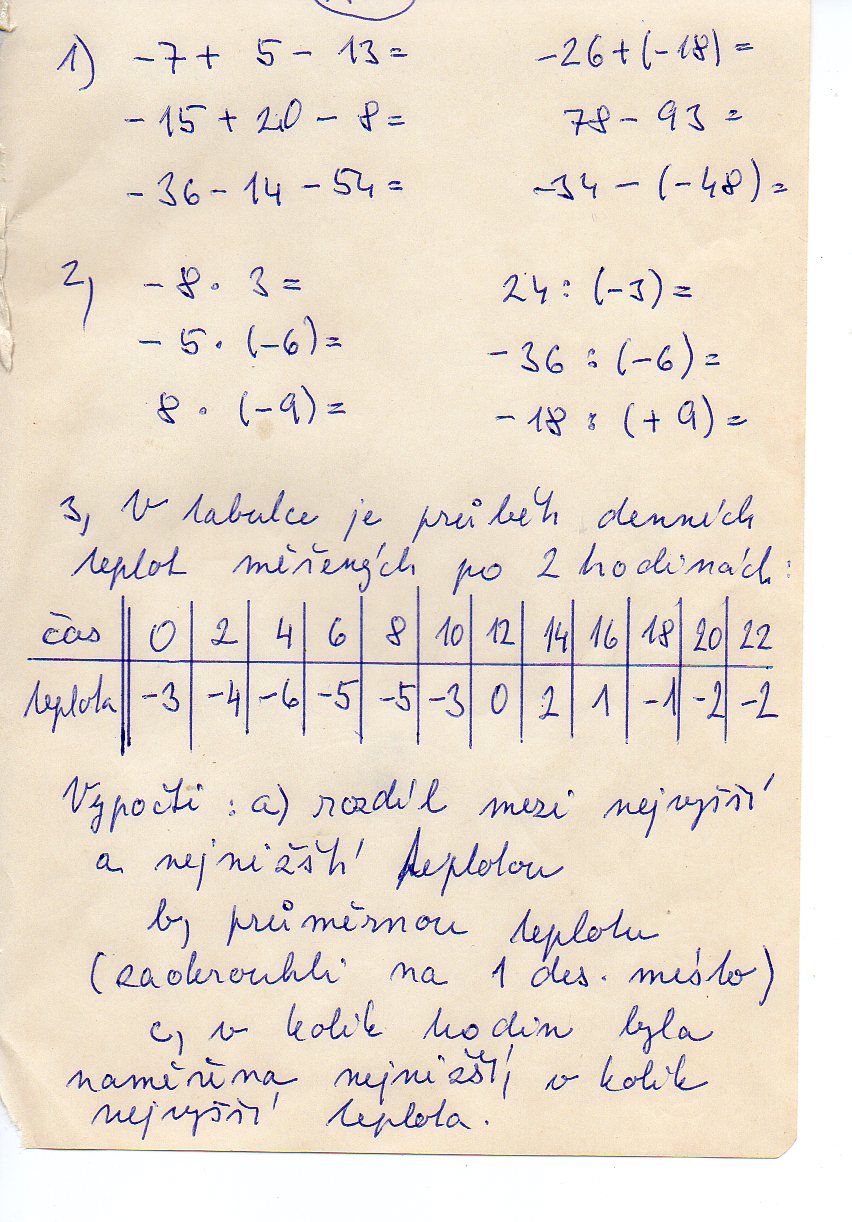 1) -7 + 5 - 13 = -26 + (-18) =
-15 + 20 - 8 = 78 - 93 =
-36 - 14 - 54 = -34 - (-48) =
2, -8 · 3 = 24 : (-3) =
-5 · (-6) = -36 : (-6) =
8 · (-9) = -18 : (+9) =
3, V tabulce je průběh denních
teplot měřených po 2 hodinách:
čas 0 2 4 6 8 10 12 14 16 18 20 22
teplota -3 -4 -6 -5 -5 -3 0 2 1 -1 -2 -2
Vypočti: a) rozdíl mezi nejvyšší
a nejnižší teplotou
b, průměrnou teplotu
(zaokrouhli na 1 des. místo)
c, v kolik hodin byla
naměřena nejnižší, v kolik
nejvyšší teplota.